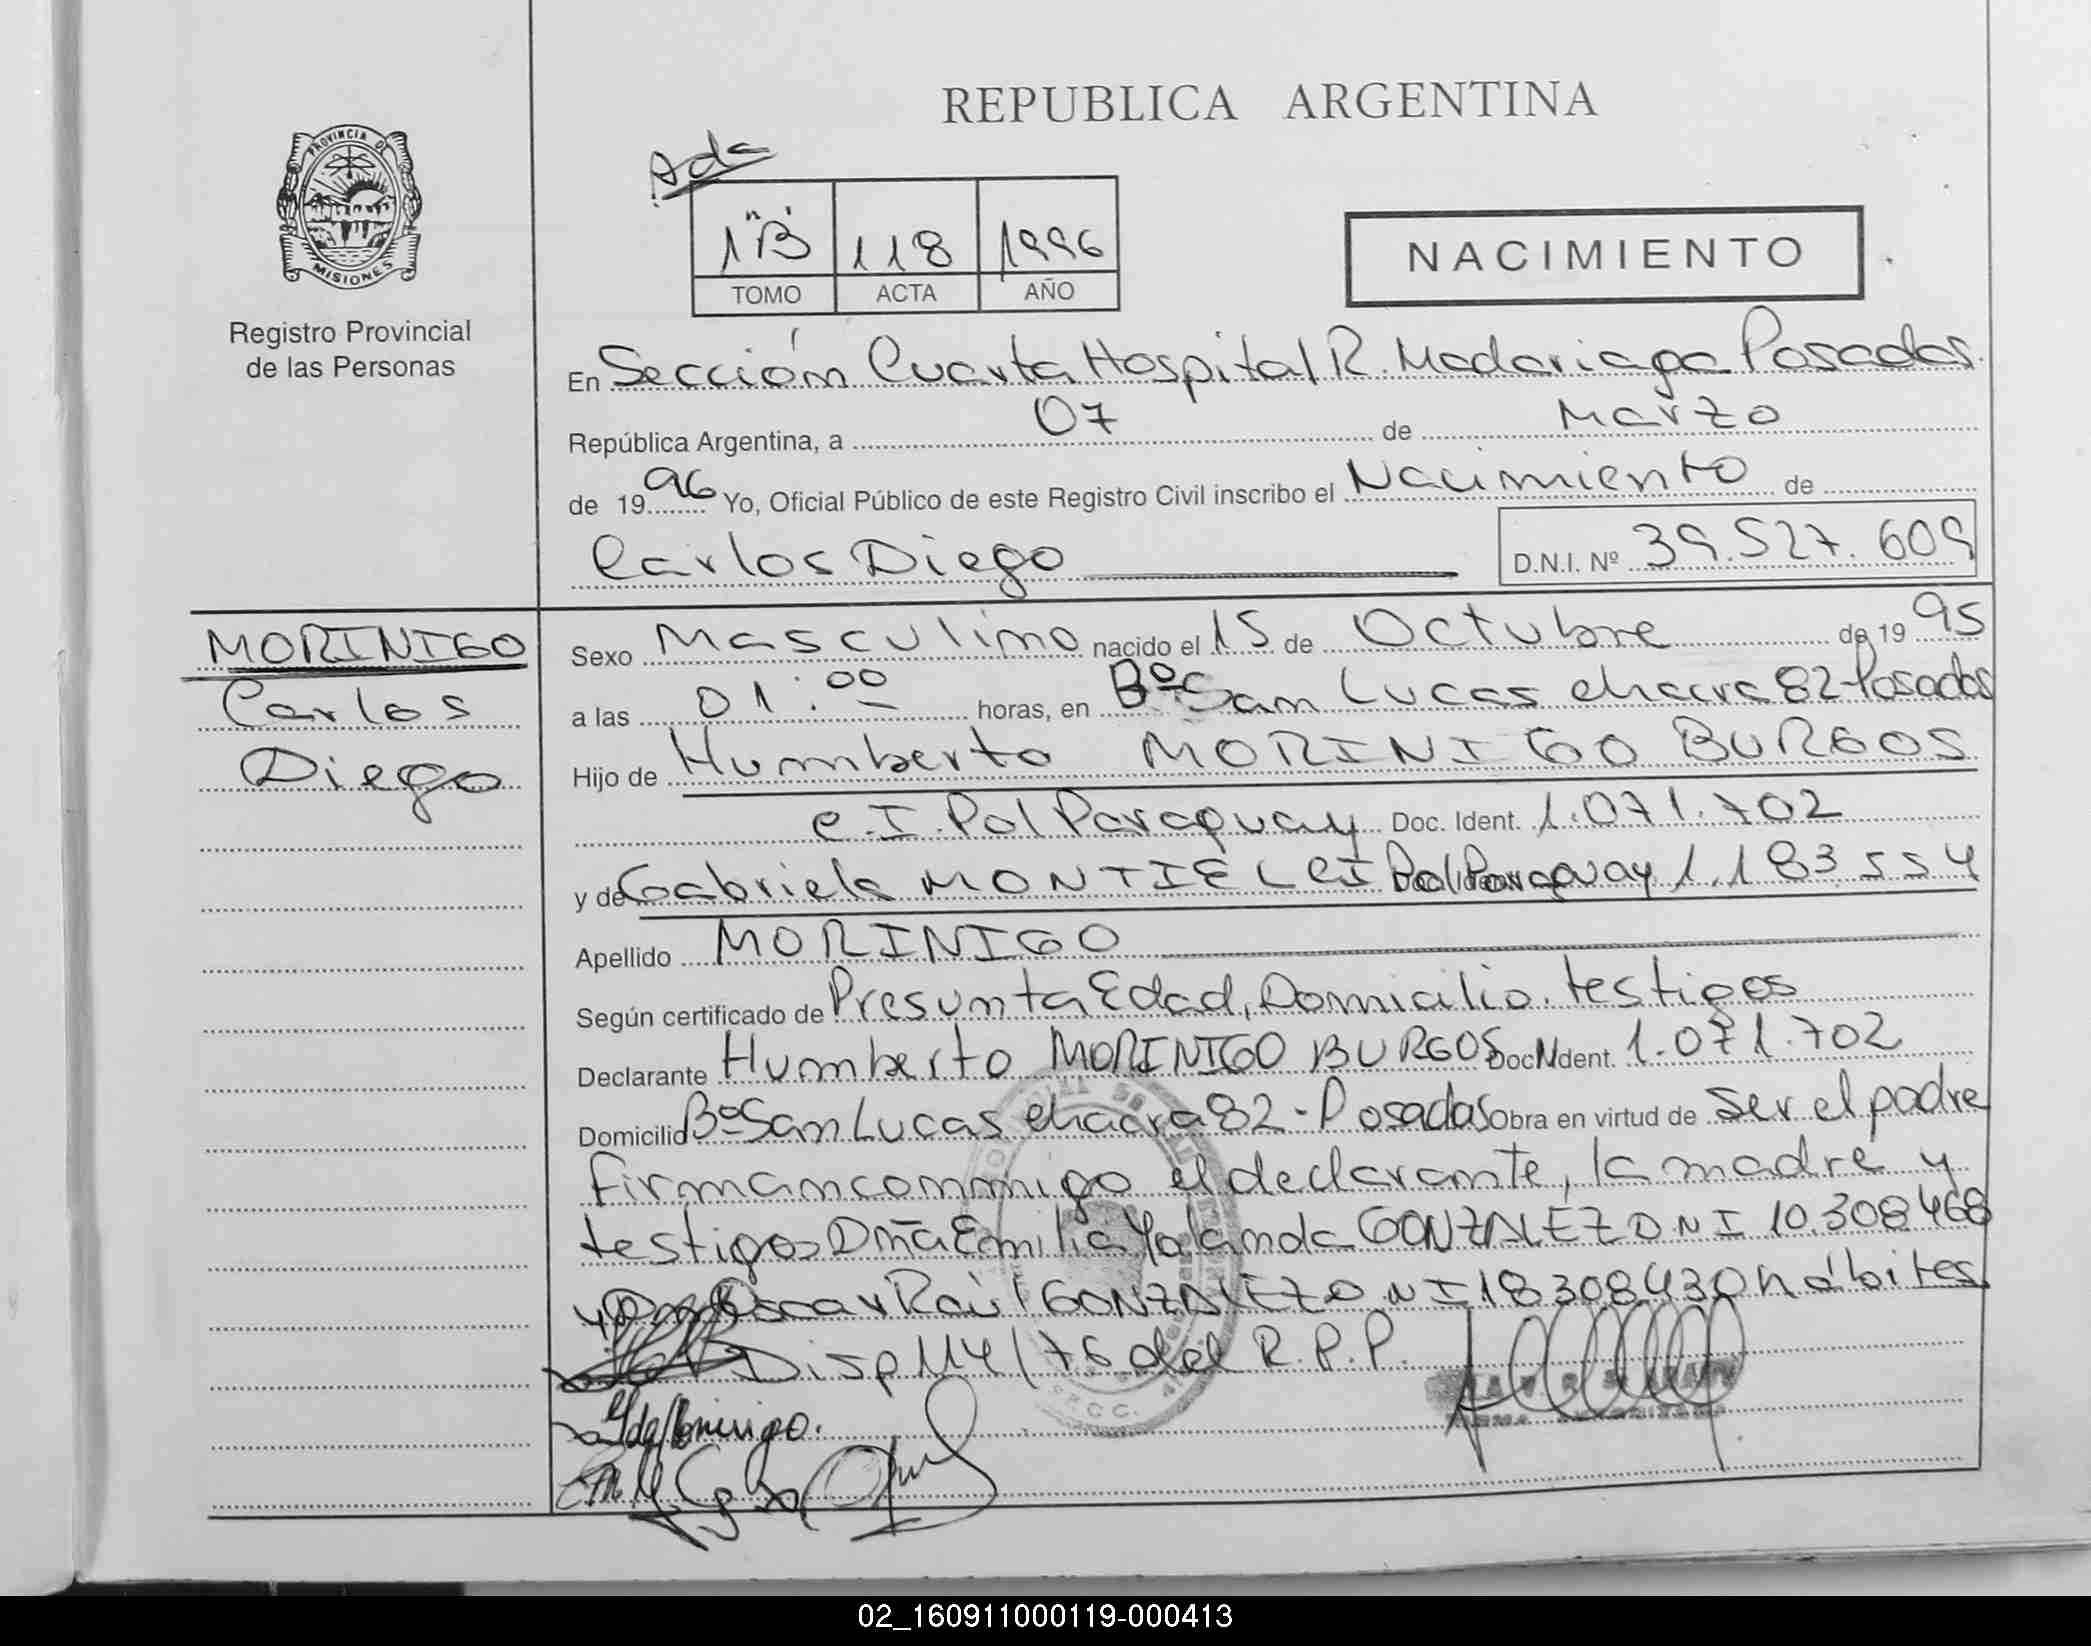 REPUBLICA ARGENTINA
PROVINCIA DE
MISIONES
Registro Provincial
de las Personas
1 "B" 118 1996
TOMO ACTA AÑO
NACIMIENTO
En Sección Cuarta Hospital R. Madariaga Posadas.
República Argentina, a 07 de Marzo
de 1996 Yo, Oficial Público de este Registro Civil inscribo el Nacimiento de
Carlos Diego D.N.I. Nº 39.527.609
MORINIGO
Carlos
Diego
Sexo Masculino nacido el 15 de Octubre de 1995
a las 01:00 horas, en Bº San Lucas chacra 82-Posadas
Hijo de Humberto MORINIGO BURGOS
C.I. Pol Paraguay Doc. Ident. 1.071.702
y de Gabriela MONTIEL CI Pol Paraguay 1.183.554
Apellido MORINIGO
Según certificado de Presunta Edad, Domicilio. testigos
Declarante Humberto MORINIGO BURGOS Doc. Ident. 1.071.702
Domicilio Bº San Lucas chacra 82 - Posadas Obra en virtud de Ser el padre
firman conmigo el declarante, la madre y
testigos Dña Emilia Yolanda GONZALEZ DNI 10.308468
y Oscar Raúl GONZALEZ DNI 18308430 hábites
Disp 114/76 del R.P.P.
02_160911000119-000413